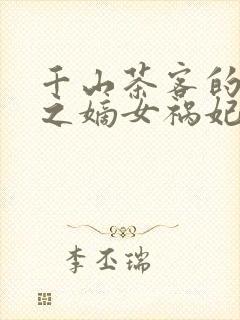 千山茶客的
之嫡女祸妃
李丕瑞